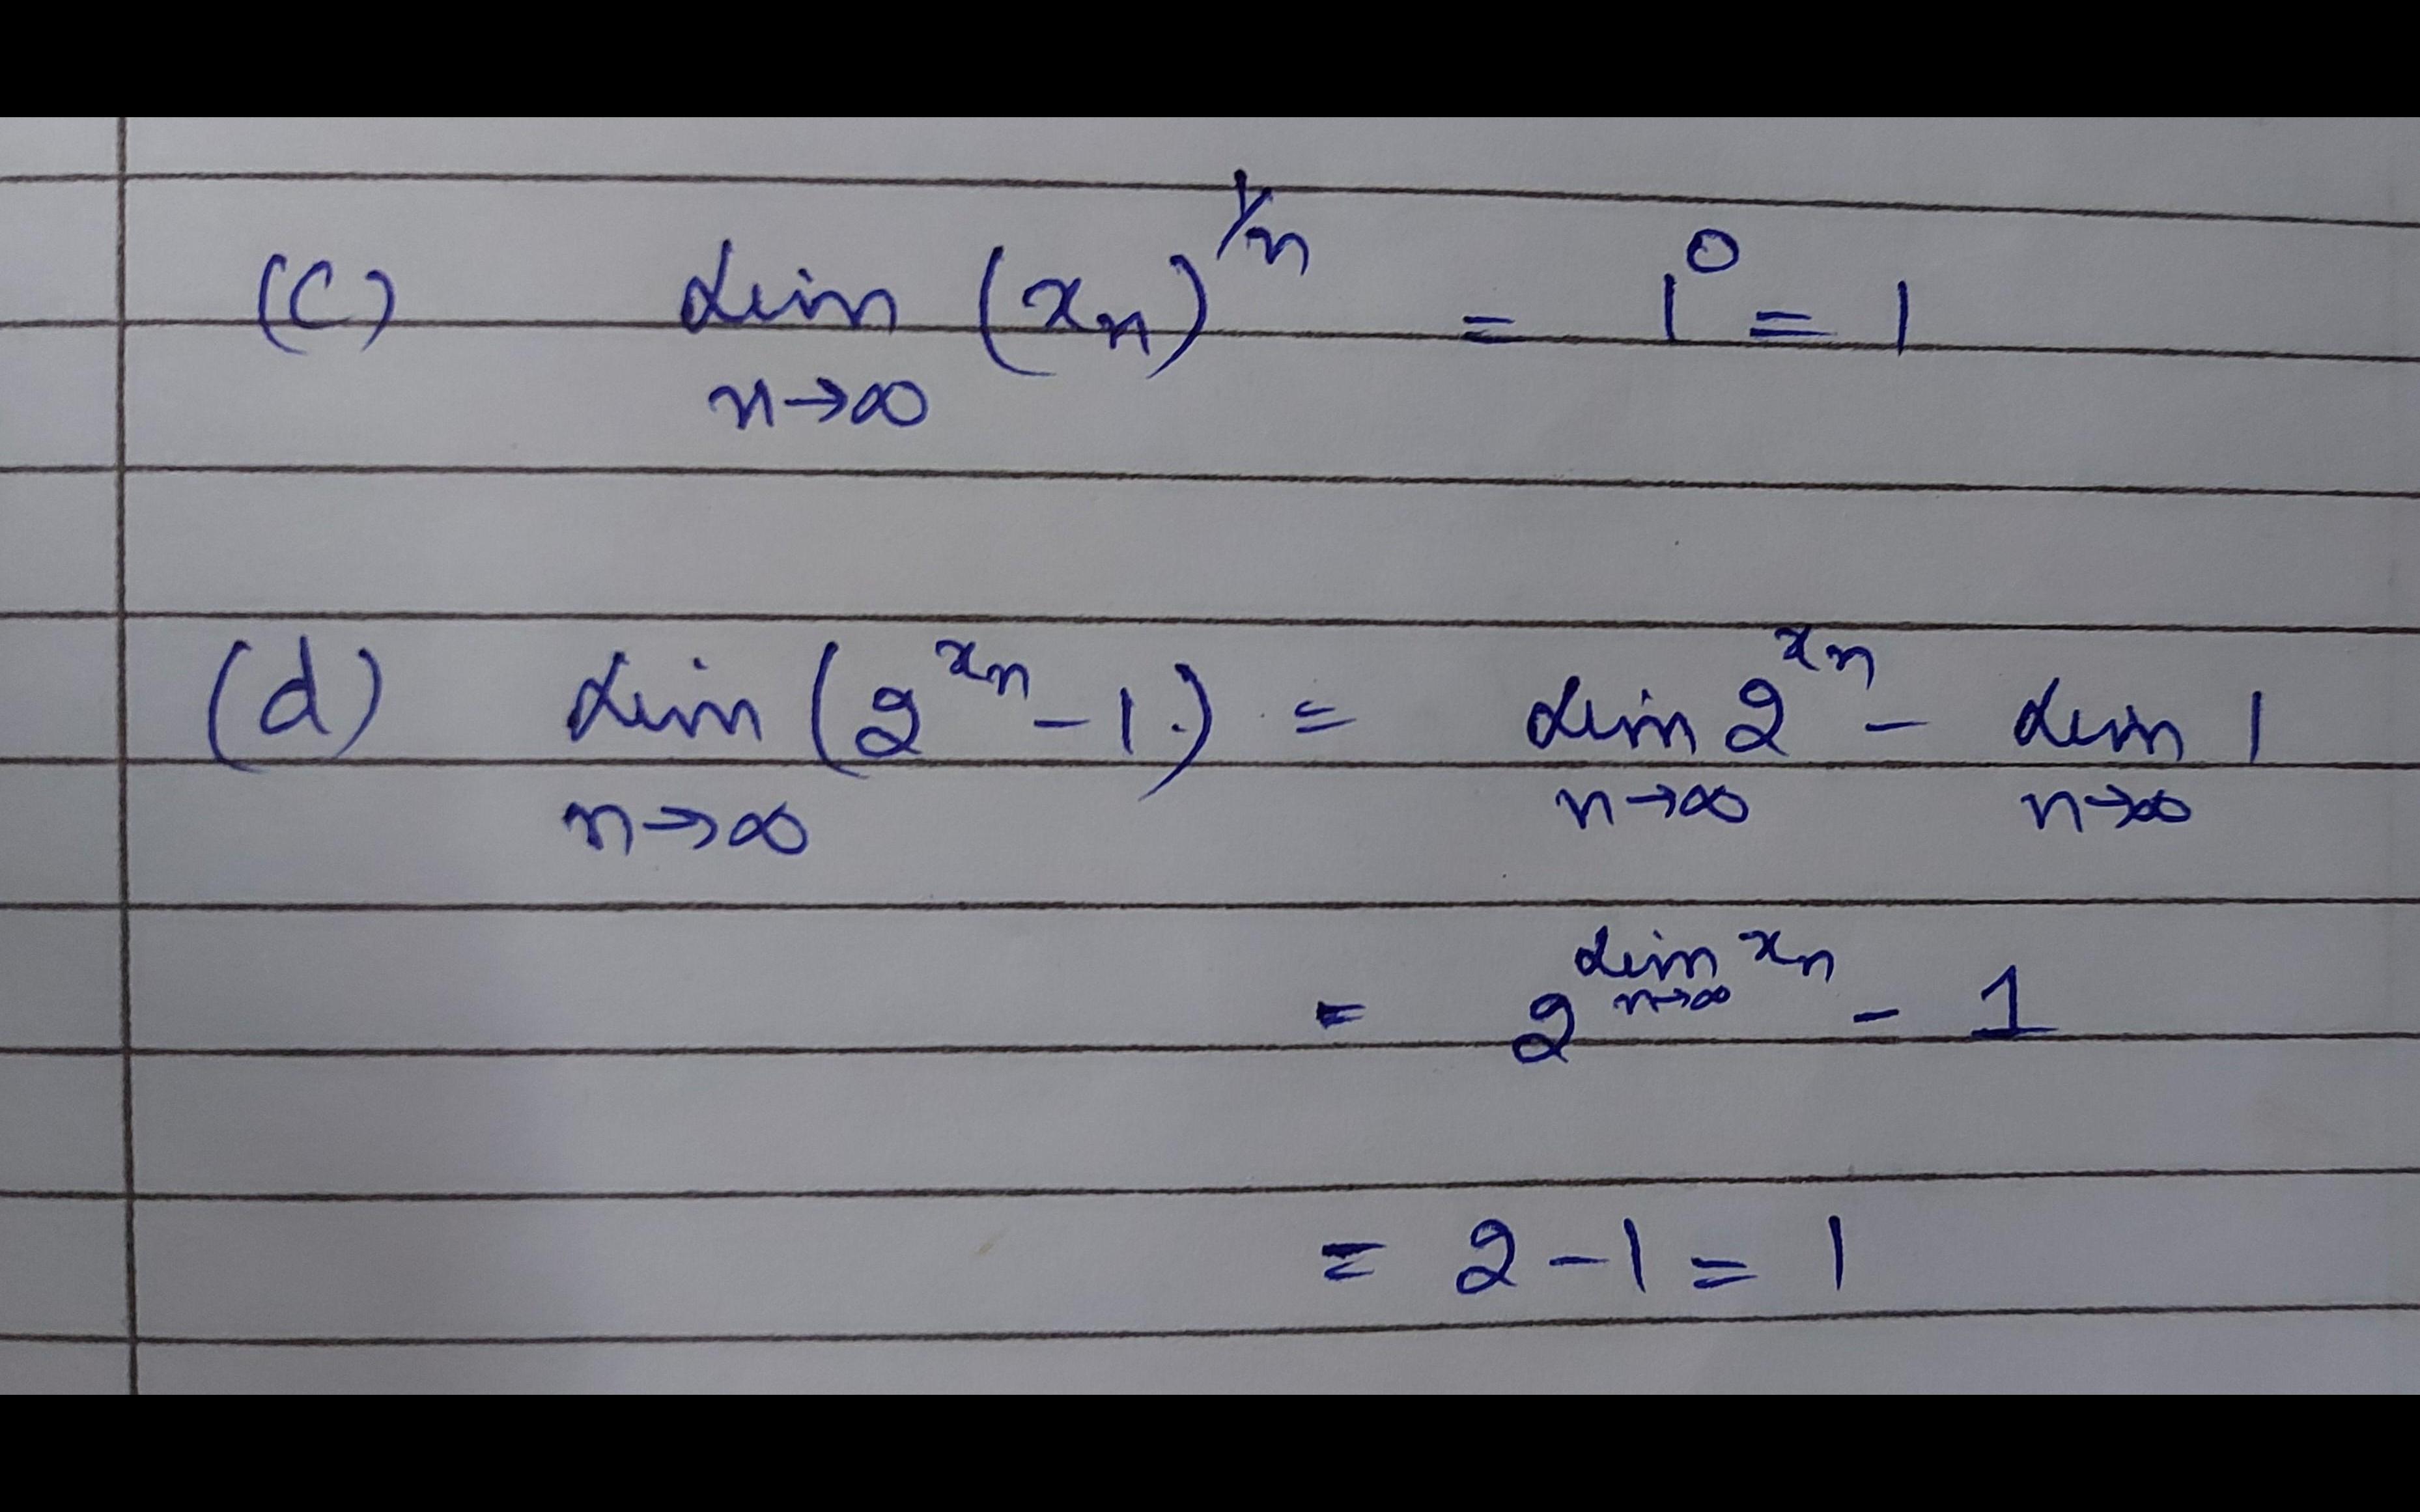 (c) lim n→∞ (xₙ)^(1/n) = 1⁰ = 1
(d) lim n→∞ (2^(xₙ) - 1.) = lim n→∞ 2^(xₙ) - lim n→∞ 1
= 2^(lim n→∞ xₙ) - 1
= 2 - 1 = 1